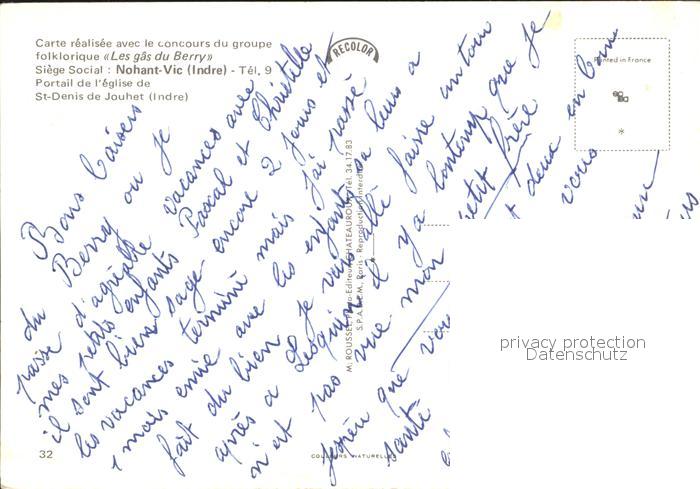 Carte réalisée avec le concours du groupe
folklorique «Les gâs du Berry»
Siège Social : Nohant-Vic (Indre) - Tél. 9
Portail de l'église de
St-Denis de Jouhet (Indre)
RECOLOR
Printed in France
*
Bons Baisers
du Berry ou je
passe d'agréable vacances avec
mes petits enfants Pascal et Christelle
il sont bien sage encore 2 jours et
les vacances terminé mais j'ai passé
1 mois avec les enfants sa leurs a
fait du bien je vais faire un tour
après a allé y a longtemps que je
n'est pas vue mon petit frère
j'espère que vous deux en bonne
santé vous
M. ROUSSEL, Photo-Editeur, CHATEAUROUX, Tél. 34.17.83
S.P.A.D.E.M., Paris - Reproduction interdite
32
COULEURS NATURELLES
privacy protection
Datenschutz